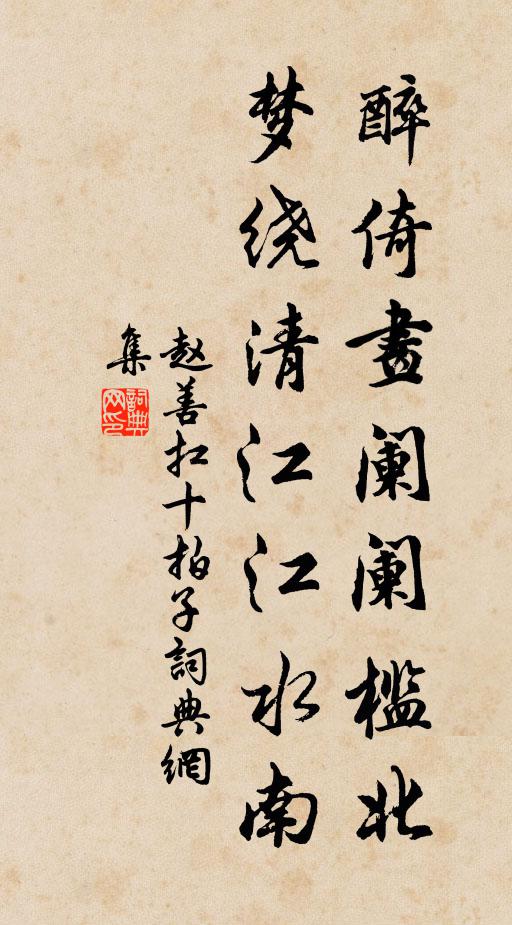 醉倚畫阑阑槛北
梦绕清江江水南
赵善扛十拍子詞典網
集
詞典网印